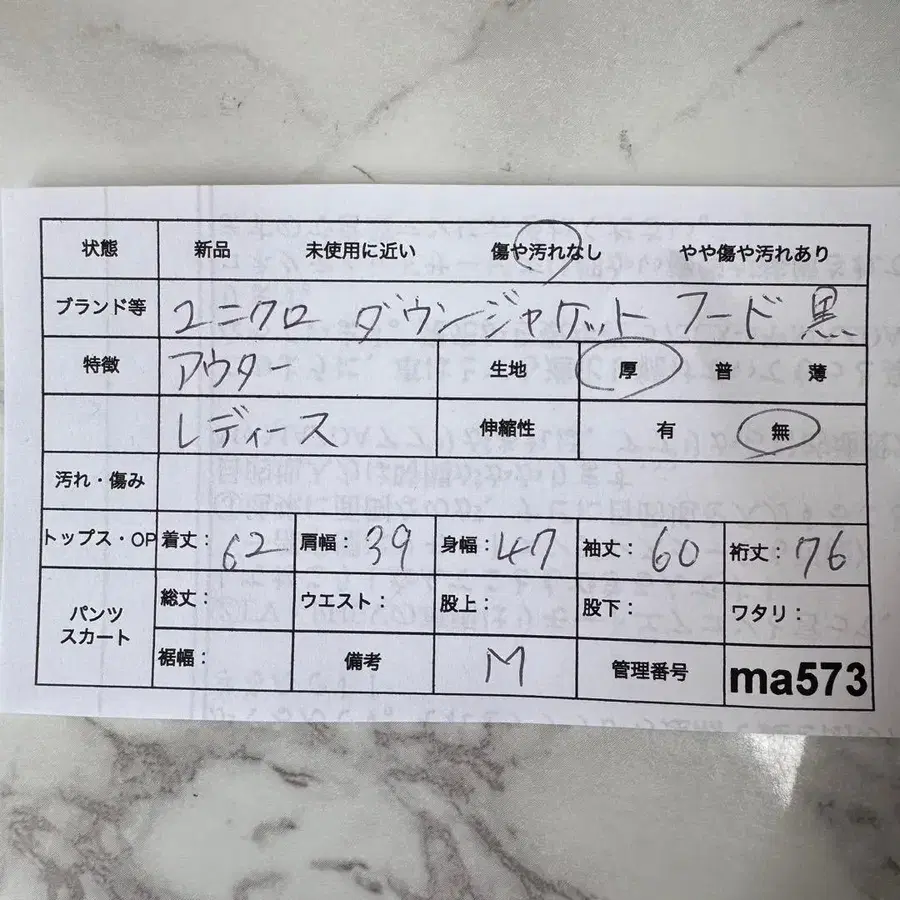 状態 新品 未使用に近い 傷や汚れなし やや傷や汚れあり
ブランド等 ユニクロ ダウンジャケット フード 黒
特徴 アウター 生地 厚 普 薄
レディース 伸縮性 有 無
汚れ・傷み
トップス・OP 着丈: 62 肩幅: 39 身幅: 47 袖丈: 60 裄丈: 76
パンツ スカート 総丈: ウエスト: 股上: 股下: ワタリ:
裾幅: 備考 M 管理番号 ma573